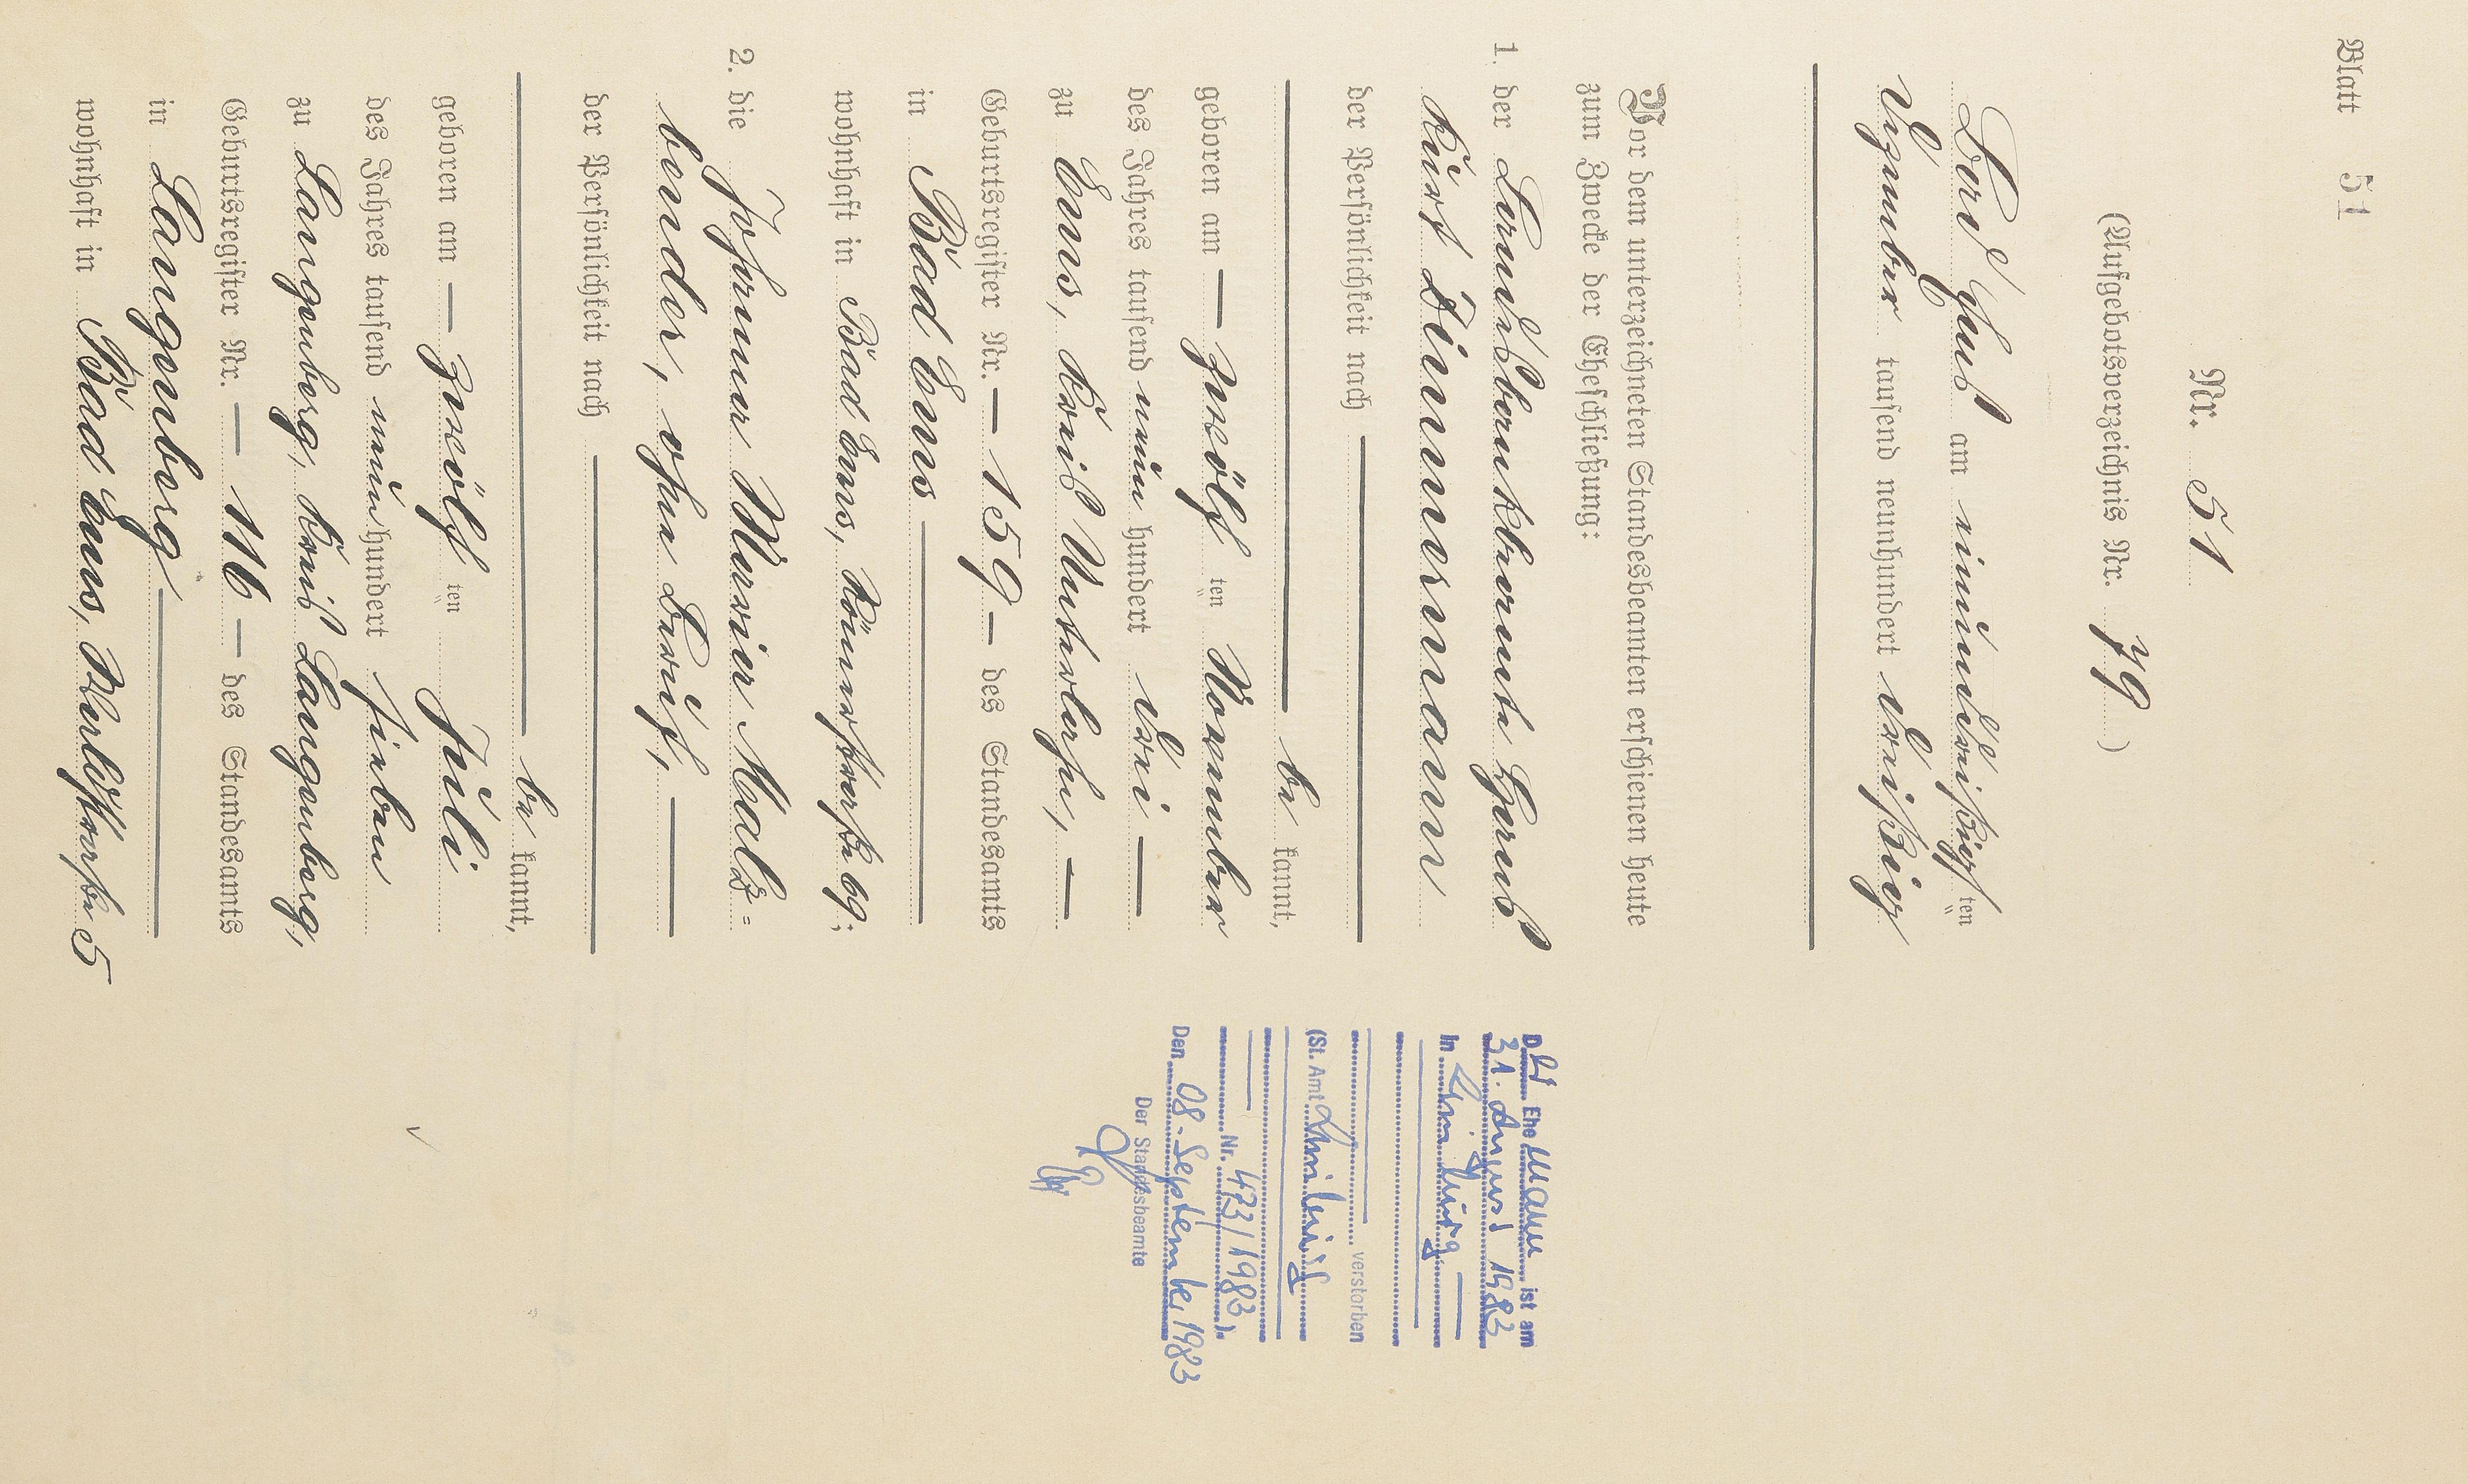 Blatt 51
Nr. 51
(Aufgebotsverzeichnis Nr. 79)
Bad Ems am einunddreißigsten
Dezember tausend neunhundert dreißig
Vor dem unterzeichneten Standesbeamten erschienen heute
zum Zwecke der Eheschließung:
1. der Landesbankbeamte Hans
Kurt Zimmermann
der Persönlichkeit nach
be kannt,
geboren am zwölften November
des Jahres tausend neun hundert drei
zu Ems, Kreis Unterlahn,
Geburtsregister Nr. 159 des Standesamts
in Bad Ems
wohnhaft in Bad Ems, Römerstraße 69;
2. die Johanna Maria Malz=
bender, ohne Beruf,
der Persönlichkeit nach
be kannt,
geboren am zwölften Juli
des Jahres tausend neun hundert sieben
zu Langenberg, Kreis Langenberg,
Geburtsregister Nr. 116 des Standesamts
in Langenberg
wohnhaft in Bad Ems, 5
Der Ehemann ist am
31. August 1983
in
verstorben
(St. Amt
Nr. 473/1983).
Den 08. September 1983
Der Standesbeamte